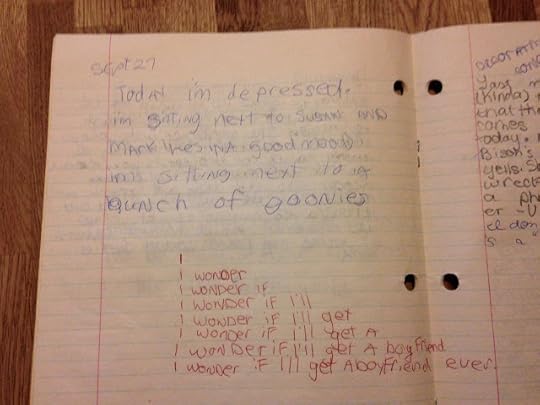 Sept 27
Today i'm depressed.
i'm sitting next to Susan AND
Mark Ives in A good mood
i'm sitting next to A
Bunch of goonies
I
I wonder
I wonder if
I wonder if I'll
I wonder if I'll get
I wonder if I'll get A
I wonder if I'll get A boyfriend
I wonder if I'll get A boyfriend ever.
y
last
(Kinda)
that the
comes
today.
Bison's
yells.
wreck
a
er -
s a